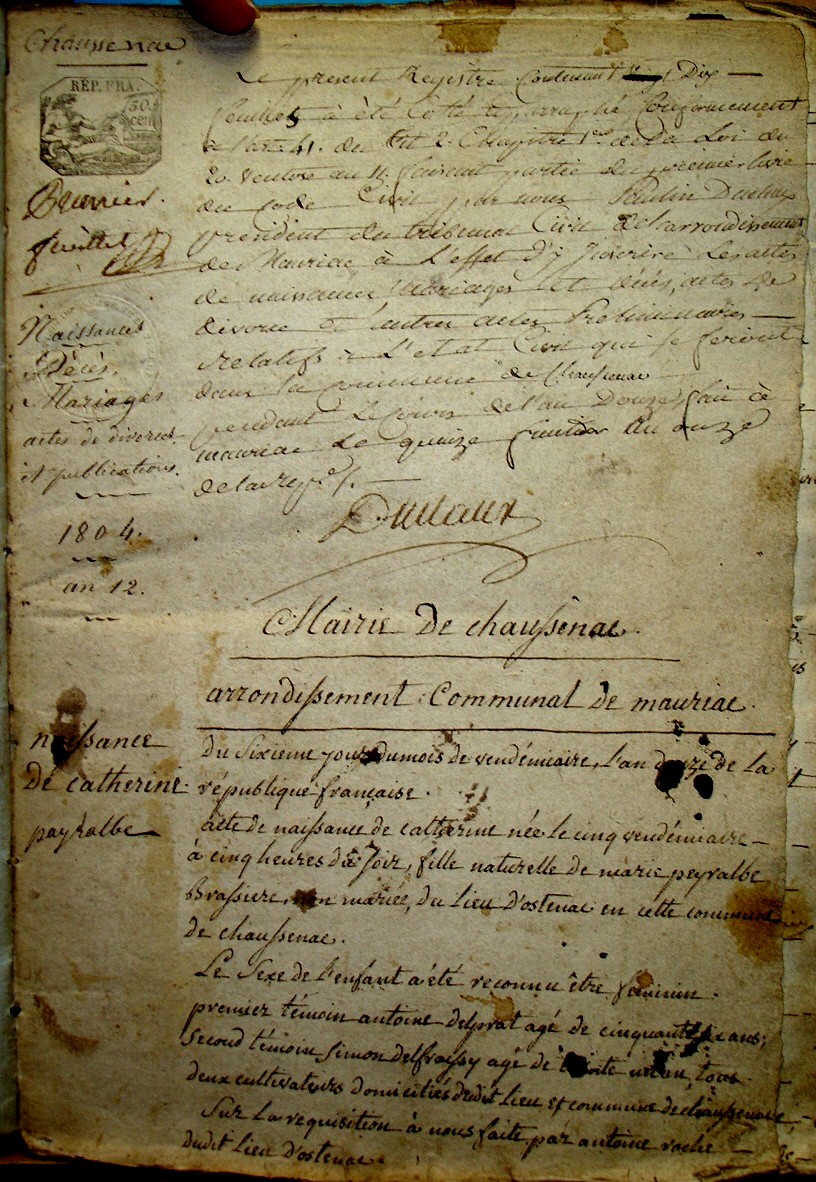 Chaussenac
REP. FRA.
50.
cen
Premier
feuillet
Naissances
Décès.
Mariages
actes de divorces
et publications.
1804.
an 12.
Le present Registre Contenant Dix
feuillets à été Cotté et parraphé Conformement
a l'art. 41. du tit 2. Chapitre 1er de la Loi du
20 ventose an 11. faisant partie du premier livre
du Code Civil par nous
president du tribunal Civil de l'arrondissement
de Mauriac à L'effet d'y Inserére Les actes
de naissances, mariages et décès, actes de
divorce et autres actes Preliminaires
relatifs à L'etat Civil qui se feront
dans la Commune de Chaussenac
pendant Le Cours de l'an Douze, fait à
mauriac Le quinze fructidor an onze
de la rep.e /.
Mairie De chaussenac.
arrondissement Communal de mauriac.
naissance
De catherine
peyralbe
Du Sixieme jour du mois de vendémiaire, L'an douze de La
république francaise.
acte de naissance de catherine née le cinq vendémiaire
à cinq heures du Soir, fille naturelle de marie peyralbe
Brassiere, non mariée, du Lieu D'ostenac en cette commune
de chaussenac.
Le Sexe de L'enfant a été reconnu être feminin.
premier témoin antoine delprat agé de cinquante six ans;
Second témoin Simon delfraissy agé de trente un an, tous
deux cultivateurs domiciliés dudit Lieu et commune de chaussenac,
Sur La requisition à nous faite par antoine roche
dudit Lieu D'ostenac.